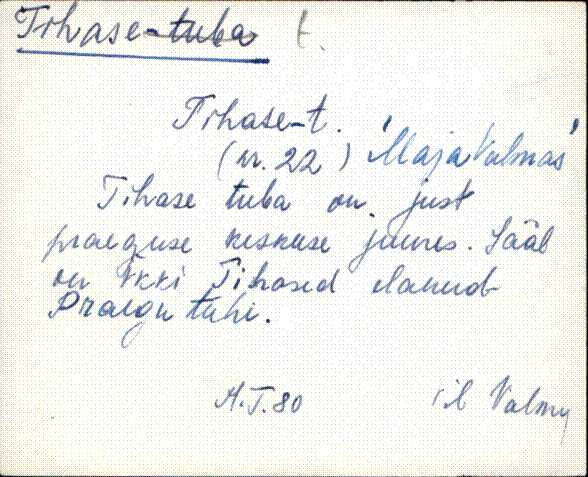 Tihase-tuba t.
Tihase-t.
(nr. 22) 'Maja Valmas'
Tihase tuba on just
praeguse keskuse jaures. Sääl
on ikki Tihased elanud
Praegu tühi.
M.T. 80 Valmy